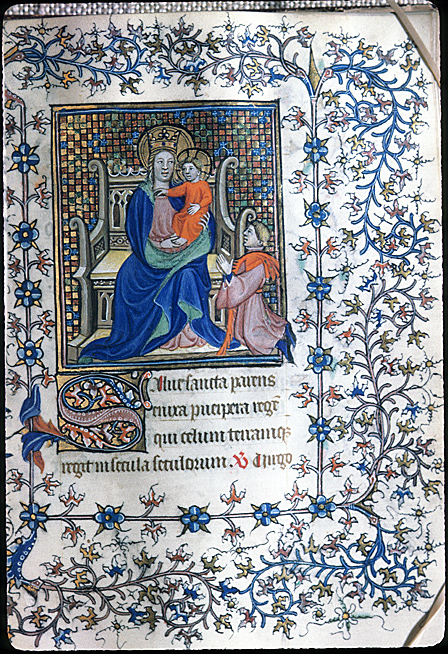 Salue sancta parens
enixa puerpera regē
qui celum terramqʒ
regit in secula seculorum. ℣ Uirgo